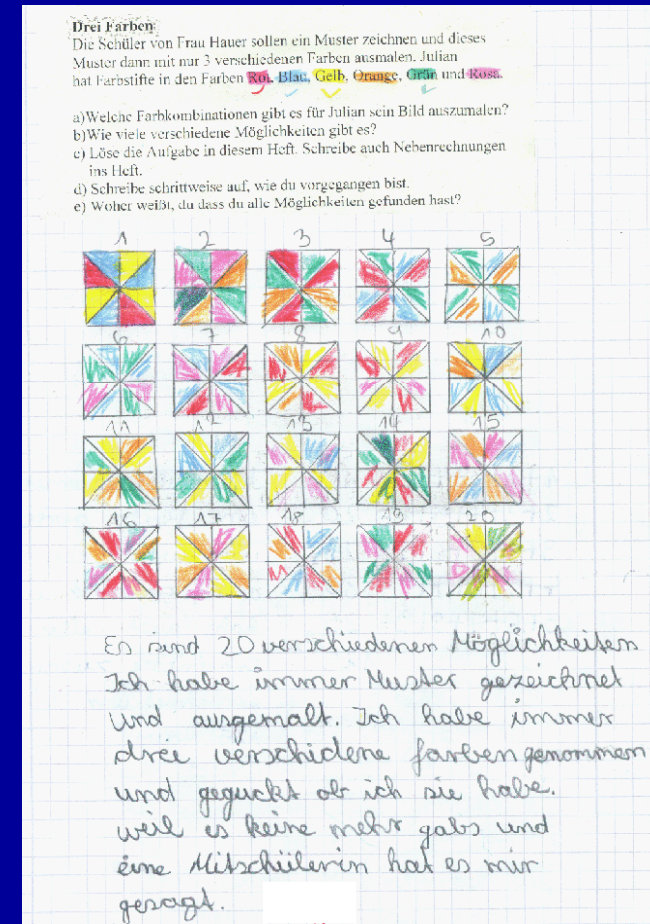 Drei Farben
Die Schüler von Frau Hauer sollen ein Muster zeichnen und dieses
Muster dann mit nur 3 verschiedenen Farben ausmalen. Julian
hat Farbstifte in den Farben Rot, Blau, Gelb, Orange, Grün und Rosa.
a)Welche Farbkombinationen gibt es für Julian sein Bild auszumalen?
b)Wie viele verschiedene Möglichkeiten gibt es?
c) Löse die Aufgabe in diesem Heft. Schreibe auch Nebenrechnungen
ins Heft.
d) Schreibe schrittweise auf, wie du vorgegangen bist.
e) Woher weißt, du dass du alle Möglichkeiten gefunden hast?
1 2 3 4 5
6 7 8 9 10
11 12 13 14 15
16 17 18 19 20
Es sind 20 verschiedenen Möglichkeiten
Ich habe immer Muster gezeichnet
und ausgemalt. Ich habe immer
drei verschidene farben genommen
und geguckt ob ich sie habe.
weil es keine mehr gabs und
eine Mitschülerin hat es mir
gesagt.